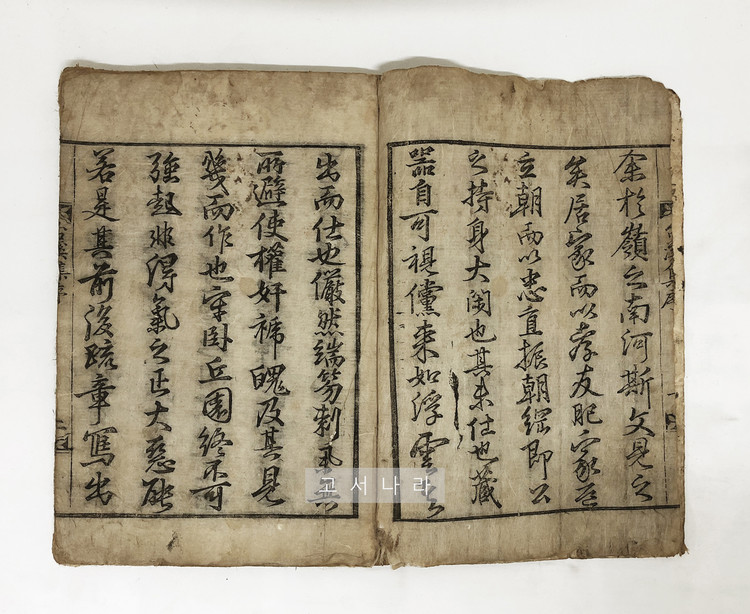 余於嶺之南河斯文見之
矣居家而以孝友肥家
立朝而以忠直振朝綱即公
之持身大閑也其未仕也藏
器自可視儻來如浮雲
出而仕也儼然端笏刺無
所避使權奸褫魄及其見
幾而作也牢臥丘園終不可
強起非得氣之正大惡能
若是其前後疏章寫出
고서나라